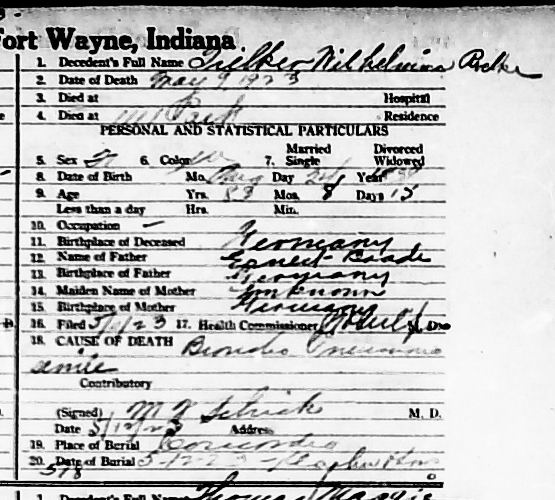 Fort Wayne, Indiana
1. Decedent's Full Name Tielker Wilhelmina
2. Date of Death May 9 1923
3. Died at Hospital
4. Died at Residence
PERSONAL AND STATISTICAL PARTICULARS
5. Sex 6. Color w 7. Married Single Divorced Widowed
8. Date of Birth Mo. Aug Day 24 Year
9. Age Yrs. 83 Mos. 8 Days 15
Less than a day Hrs. Min.
10. Occupation —
11. Birthplace of Deceased Germany
12. Name of Father Ernest Baade
13. Birthplace of Father Germany
14. Maiden Name of Mother Unknown
15. Birthplace of Mother Germany
16. Filed 17. Health Commissioner M. D.
18. CAUSE OF DEATH Broncho Pneumonia
senile
Contributory
(Signed) M. D.
Date 5/12/23 Address
19. Place of Burial Concordia
20. Date of Burial 5-12-23
578
1. Decedent's Full Name Thomas